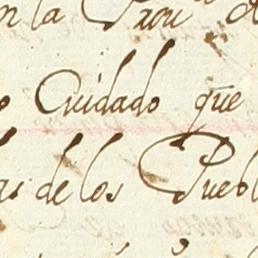 n la Prov
Cuidado que
as de los Puebl